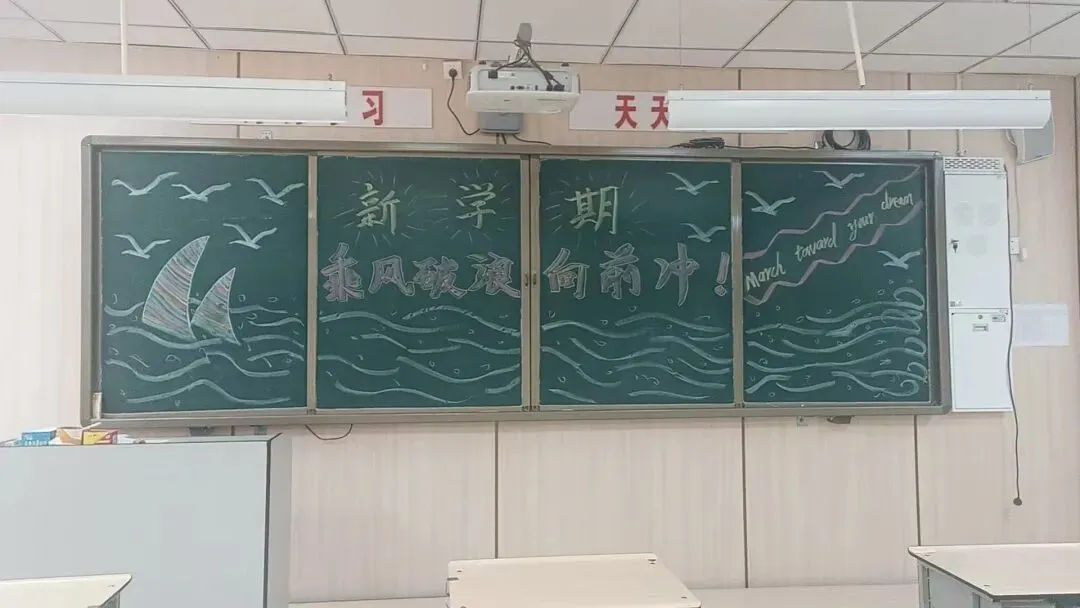 习 天天
新学期
乘风破浪向前冲！
March toward your dream